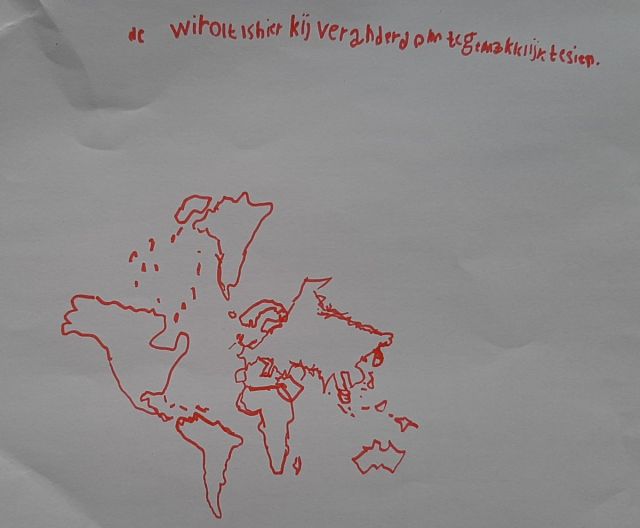 de wirolt is hier kij veranderd om te gemakklijk te sien.